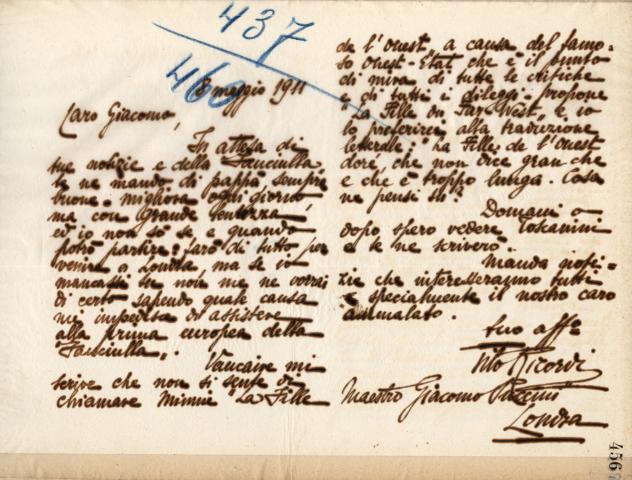 437
460
8 maggio 1911
Caro Giacomo,
In attesa di
tue notizie e della "Fanciulla"
te ne mando di pappà sempre
buone - migliora ogni giorno
ma con grande lentezza,
ed io non so se e quando
potrò partire: farò di tutto per
venire a Londra, ma se io
mancassi tu non me ne vorrai
di certo sapendo quale causa
mi impedisca di assistere
alla prima europea della
"Fanciulla".
Vaucaire mi
scrive che non si sente di
chiamare Minnie "La Fille
de l'Ouest" a causa del famo-
so Ouest-Etat che è il punto
di mira di tutte le critiche
e di tutti i dileggi - propone
"La Fille du Far-West" e io
lo preferirei alla traduzione
letterale: "La Fille de l'Ouest
doré", che non dice gran che
e che è troppo lunga. Cosa
ne pensi tu?
Domani o
dopo spero vedere Toscanini
e te ne scriverò.
Manda
che interesseranno tutti
e specialmente il nostro caro
ammalato.
tuo affo
Tito Ricordi
Maestro Giacomo Puccini
Londra
456